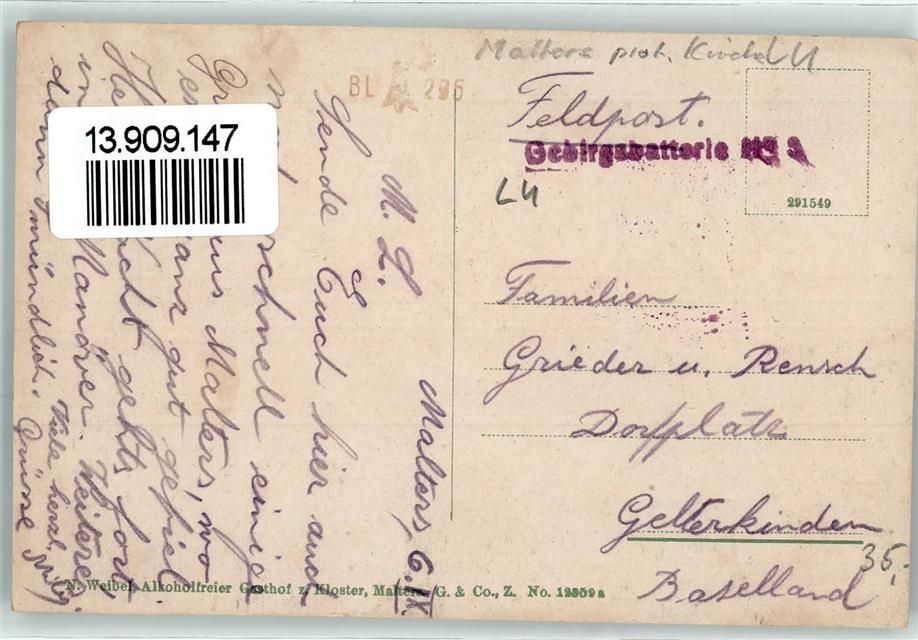 Malters prot. Kirche LU
BL 295
13.909.147
Feldpost.
Gebirgsbatterie
LU
291549
Familien
Grieder u. Rensch
Dorfplatz
Gelterkinden
Baselland
35,-
Malters, 6. IX.
M. L.
Sende Euch hier auch
noch schnell einige
aus Malters, wo
ganz gut gefiel.
gehts fort
in Manöver. Weiteres
dann mündlich.
Viele herzl.
Grüsse
N. Weibel, Alkoholfreier Gasthof z. Kloster, Malters. G. & Co., Z. No. 12359a